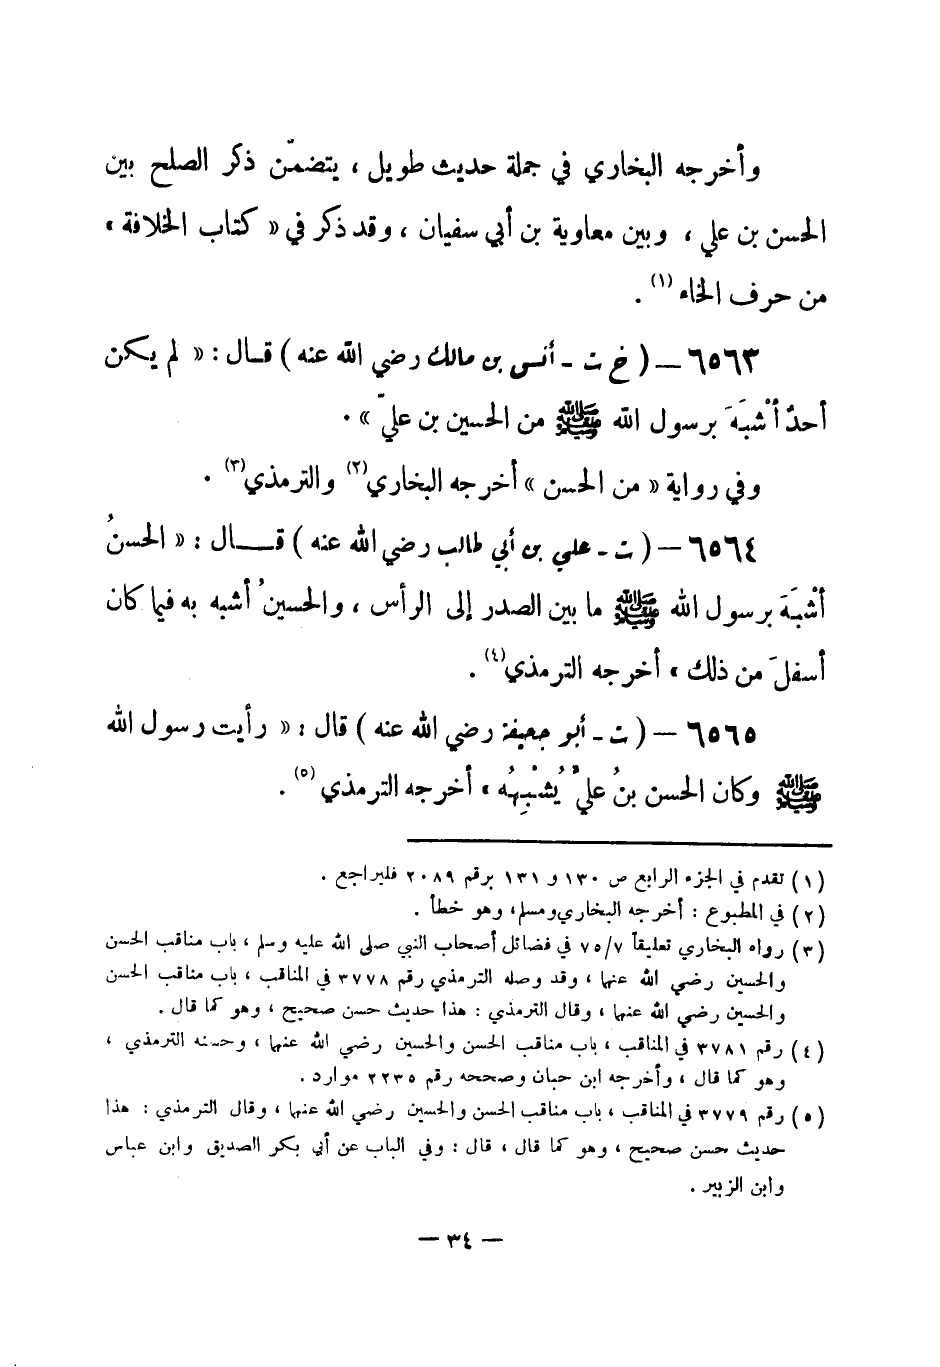 وأخرجه البخاري في جملة حديث طويل ، يتضمّن ذكر الصلح بين
الحسن بن علي ، وبين معاوية بن أبي سفيان ، وقد ذكر في « كتاب الخلافة »
من حرف الخاء (١) .
٦٥٦٣ – ( خ ت - أنس بن مالك رضي الله عنه ) قال : « لم يكن
أحدٌ أشْبَهَ برسول الله ﷺ من الحسين بن عليّ » .
وفي رواية « من الحسن » أخرجه البخاري(٢) والترمذي(٣) .
٦٥٦٤ – ( ت - علي بن أبي طالب رضي الله عنه ) قال : « الحسنُ
أشْبَهَ برسول الله ﷺ ما بين الصدر إلى الرأس ، والحسينُ أشبه به فيما كان
أسفلَ من ذلك » أخرجه الترمذي(٤) .
٦٥٦٥ – ( ت - أبو جحيفة رضي الله عنه ) قال : « رأيت رسول الله
ﷺ وكان الحسن بنُ عليٍّ يُشْبِهُه » أخرجه الترمذي (٥) .
(١) تقدم في الجزء الرابع ص ١٣٠ و ١٣١ برقم ٢٠٨٩ فليراجع .
(٢) في المطبوع : أخرجه البخاري ومسلم ، وهو خطأ .
(٣) رواه البخاري تعليقاً ٧٥/٧ في فضائل أصحاب النبي صلى الله عليه وسلم ، باب مناقب الحسن
والحسين رضي الله عنهما ، وقد وصله الترمذي رقم ٣٧٧٨ في المناقب ، باب مناقب الحسن
والحسين رضي الله عنهما ، وقال الترمذي : هذا حديث حسن صحيح ، وهو كما قال .
(٤) رقم ٣٧٨١ في المناقب ، باب مناقب الحسن والحسين رضي الله عنهما ، وحسنه الترمذي ،
وهو كما قال ، وأخرجه ابن حبان وصححه رقم ٢٢٣٥ موارد .
(٥) رقم ٣٧٧٩ في المناقب ، باب مناقب الحسن والحسين رضي الله عنهما ، وقال الترمذي : هذا
حديث حسن صحيح ، وهو كما قال ، قال : وفي الباب عن أبي بكر الصديق وابن عباس
وابن الزبير .
– ٣٤ –